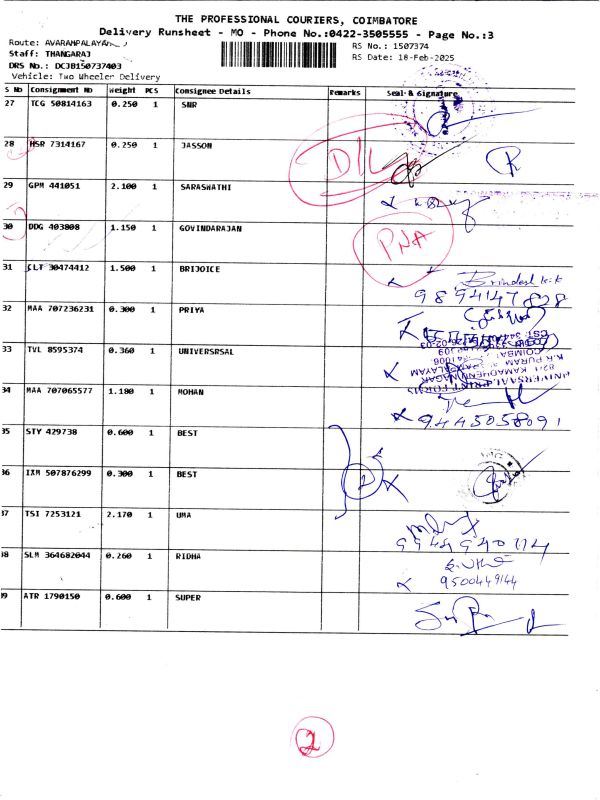 THE PROFESSIONAL COURIERS, COIMBATORE
Delivery Runsheet - MO - Phone No.:0422-3505555 - Page No.:3
Route: AVARAMPALAYAM
RS No.: 1507374
Staff: THANGARAJ
RS Date: 18-Feb-2025
DRS No.: DCJB150737403
Vehicle: Two Wheeler Delivery
S No Consignment No Weight PCS Consignee Details Remarks Seal & Signature
27 TCG 50814163 0.250 1 SNR
28 HSR 7314167 0.250 1 JASSON D/L
29 GPM 441051 2.100 1 SARASWATHI
30 DDG 403808 1.150 1 GOVINDARAJAN PNA
31 CLT 30474412 1.500 1 BRIJOICE
9894147828
32 MAA 707236231 0.300 1 PRIYA
33 TVL 8595374 0.360 1 UNIVERSRSAL
34 MAA 707065577 1.180 1 MOHAN
9445058091
35 STY 429738 0.600 1 BEST
36 IXM 507876299 0.300 1 BEST
37 TSI 7253121 2.170 1 UMA
38 SLM 364682044 0.260 1 RIDHA
9500449144
39 ATR 1790150 0.600 1 SUPER
2